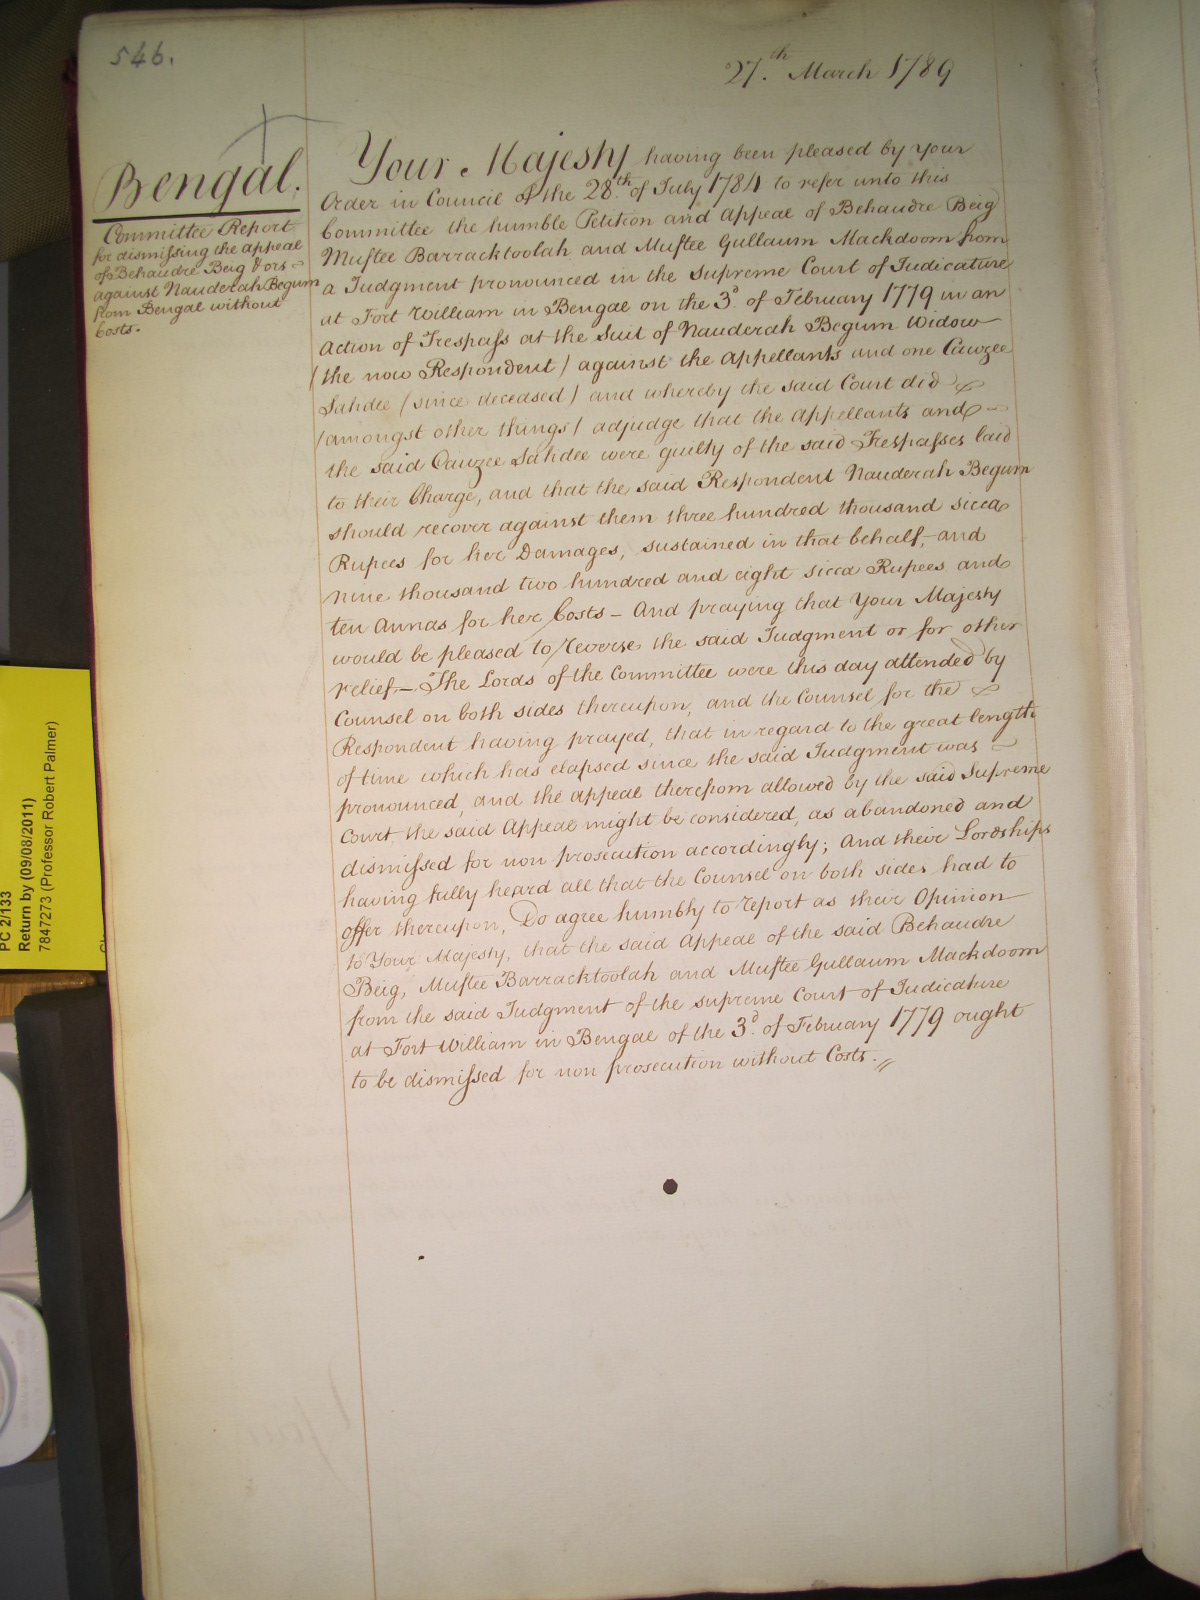 546.
27.th March 1789
Bengal.
Committee Report
for dismissing the appeal
of Behaudre Beig & ors
against Nauderah Begum
from Bengal without
Costs.
Your Majesty having been pleased by your
Order in Council of the 28.th of July 1784 to refer unto this
Committee the humble Petition and Appeal of Behaudre Beig
Muftee Barracktoolah and Muftee Gullaum Mackdoom from
a Judgment pronounced in the Supreme Court of Judicature
at Fort William in Bengal on the 3.d of February 1779 in an
Action of Trespass at the Suit of Nauderah Begum Widow
(the now Respondent) against the Appellants and one Cauzee
Sahdee (since deceased) and whereby the said Court did
(amongst other things) adjudge that the Appellants and
the said Cauzee Sahdee were guilty of the said Trespasses laid
to their Charge, and that the said Respondent Nauderah Begum
should recover against them three hundred thousand sicca
Rupees for her Damages, sustained in that behalf, and
nine thousand two hundred and eight sicca Rupees and
ten Annas for her Costs – And praying that Your Majesty
would be pleased to reverse the said Judgment or for other
relief – The Lords of the Committee were this day attended by
Counsel on both sides thereupon, and the Counsel for the
Respondent having prayed, that in regard to the great length
of time which has elapsed since the said Judgment was
pronounced, and the appeal therefrom allowed by the said Supreme
Court, the said Appeal might be considered, as abandoned and
dismissed for non prosecution accordingly; And their Lordships
having fully heard all that the Counsel on both sides had to
offer thereupon, Do agree humbly to report as their Opinion
to Your Majesty, that the said Appeal of the said Behaudre
Beig, Muftee Barracktoolah and Muftee Gullaum Mackdoom
from the said Judgment of the supreme Court of Judicature
at Fort William in Bengal of the 3.d of February 1779 ought
to be dismissed for non prosecution without Costs.
PC 2/133
Return by (09/08/2011)
7847273 (Professor Robert Palmer)